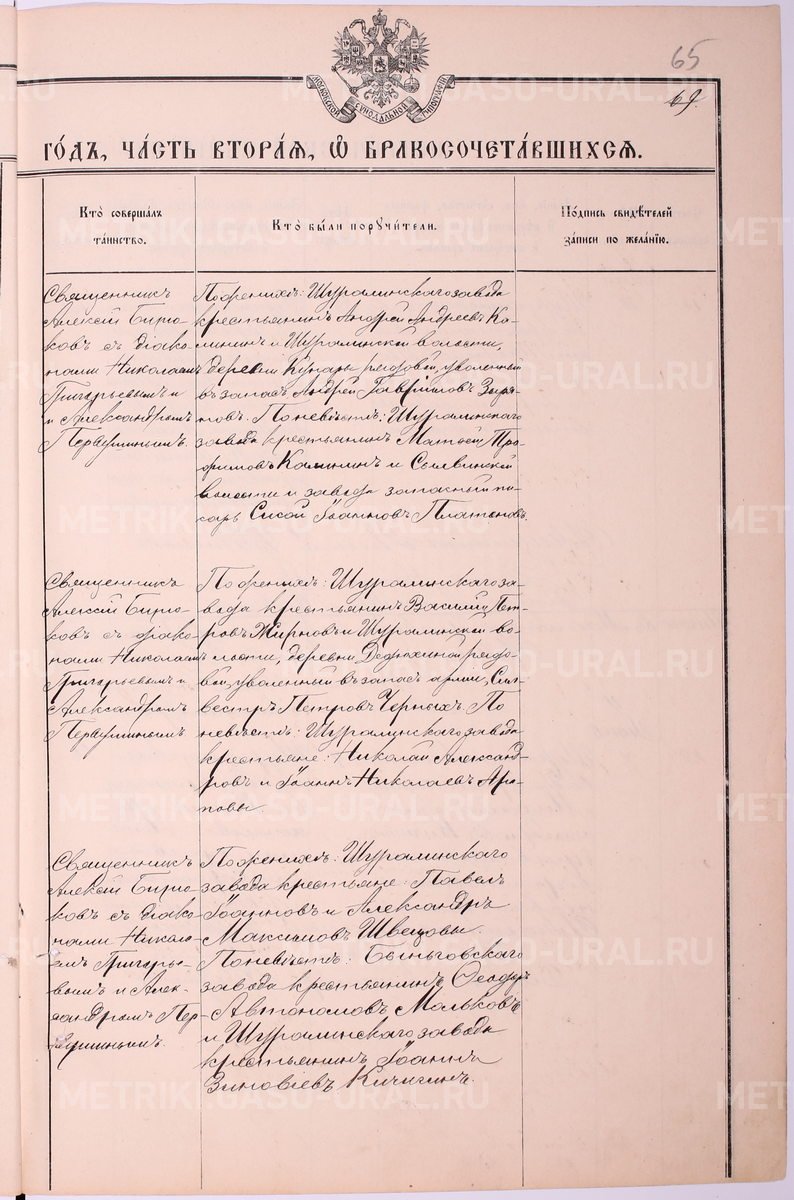 65
69.
МОСКОВСКОЙ СѴНОДАЛЬНОЙ ТИПОГРАФІИ
ГО́ДЪ, ЧА́СТЬ ВТОРА́Я, Ѽ БРАКОСОЧЕТА́ВШИХСЯ.
Кто̀ соверша́лъ
та́инство.
Кто̀ бы́ли поручи́тели.
По́дпись свидѣ́телей
за́писи по жела́нію.
Священникъ
Алексій Бирю-
ковъ съ діако-
нами Николаемъ
Григорьевымъ и
и Александромъ
Первушинымъ.
По женихѣ: Шуралинскаго завода
крестьянинъ Андрей Андреевъ Ка-
лининъ и Шуралинской волости,
деревни Кунары рядовой, уволенный
въ запасъ Андрей Гавриловъ Зыря-
новъ. По невѣстѣ: Шуралинскаго
завода крестьянинъ Матѳей Тро-
фимовъ Калининъ и
волости и завода запасный пи-
сарь Сисой Іоанновъ Платоновъ.
Священникъ
Алексій Бирю-
ковъ съ діако-
нами Николаемъ
Григорьевымъ и
Александромъ
Первушинымъ
По женихѣ: Шуралинскаго за-
вода крестьянинъ Василій Пет-
ровъ Жирновъ и Шуралинской во-
лости, деревни Дедюхиной рядо-
вой, уволенный въ запасъ арміи, Сил-
вестръ Петровъ Черныхъ. По
невѣстѣ: Шуралинскаго завода
крестьяне: Николай Александ-
ровъ и Іоаннъ Николаевъ Аро-
повы.
Священникъ
Алексій Бирю-
ковъ съ діако-
нами Никола-
емъ Григорье-
вымъ и Алек-
сандромъ Пер-
вушинымъ.
По женихѣ: Шуралинскаго
завода крестьяне: Павелъ
Іоанновъ и Александръ
Максимовъ Швецовы.
По невѣстѣ: Быньговскаго
завода крестьянинъ Ѳеодоръ
Автономовъ Мальковъ
и Шуралинскаго завода
крестьянинъ Іоаннъ
Зиновіевъ Кичигинъ.
METRIKI.GASO-URAL.RU